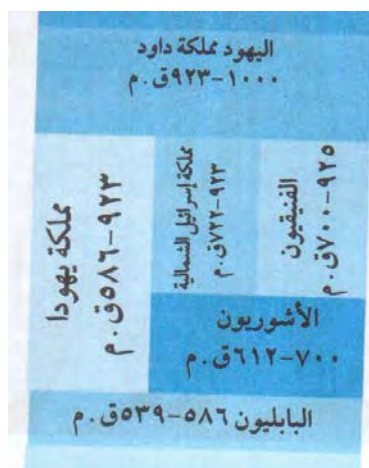 اليهود مملكة داود
١٠٠٠-٩٢٣ق.م
الفنيقيون
٩٢٥-٧٠٠ق.م
مملكة إسرائيل الشمالية
٩٢٣-٧٢٢ق.م
مملكة يهودا
٩٢٣-٥٨٦ق.م
الأشوريون
٧٠٠-٦١٢ق.م
البابليون ٥٨٦-٥٣٩ق.م